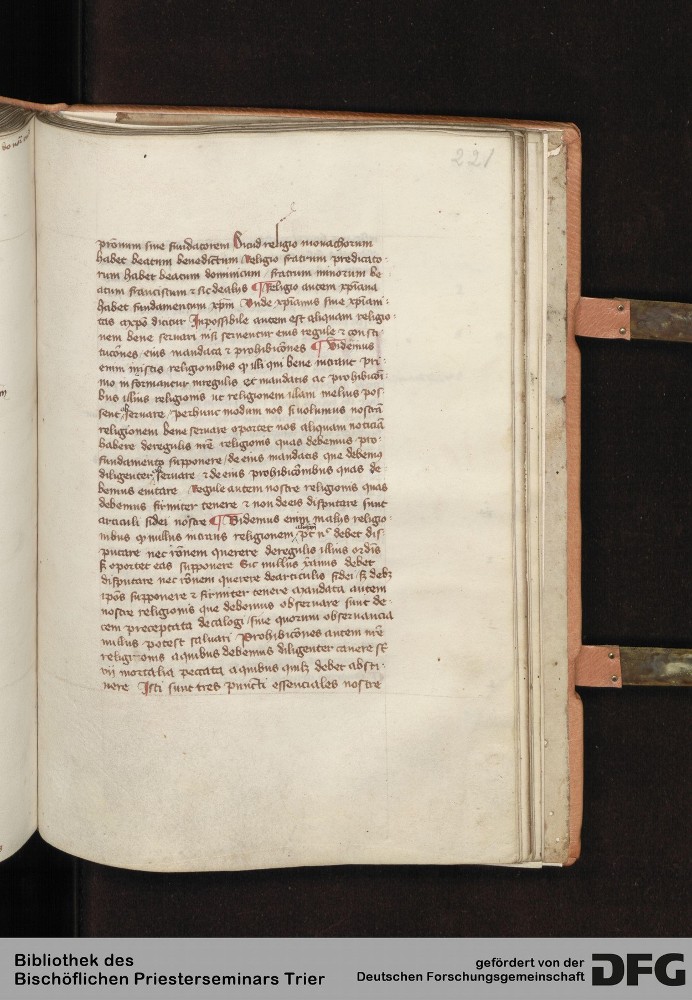 221
pronum siue fundatorem Sicud religio monachorum
habet beatum benedictum Religio fratrum predicato
rum habet beatum dominicum / fratrum minorum be
atum franciscum ⁊ sic de aliis ¶ Religio autem xpiana
habet fundamentum xpm Vnde xpianus siue xpiani
tas a xpo dicitur Inpossibile autem est aliquam religio
nem bene seruari nisi seruentur eius regule ⁊ consti
tucōnes eius mandata ⁊ prohibicōnes ¶ Videmus
enim in istis religionibus qͥ illi qui bene intrant pri
mo informantur in regulis et mandatis ac prohibicōi
bus illius religionis ut religionem illam melius pos
sent seruare / per hunc modum nos si uolumus nostrā
religionem bene seruare oportet nos aliquam noticiā
habere de regulis nrē religionis quas debemus pro
fundamento supponere / de eius mandatis que debemꝰ
diligenter seruare ⁊ de eius prohibicōnibus quas de
bemus euitare Regule autem nostre religionis quas
debemus firmiter tenere ⁊ non de eis disputare sunt
articuli fidei nostre ¶ Videmus enim in aliis religio
nibus qͥ nullus intrans religionem debet dis
putare nec rōnem querere de regulis illius ordīs
s oportet eas supponere Sic nullus xianus debet
disputare nec rōnem querere de articulis fidei / s debꝫ
ipōs supponere ⁊ firmiter tenere Mandata autem
nostre religionis que debemus obseruare sunt de
cem precepta decalogi / sine quorum obseruancia
nullus potest saluari Prohibicōnes autem nrē
religionis a quibus debemus diligenter cauere st
vii mortalia peccata a quibus quilꝫ debet absti
nere Isti sunt tres puncti essenciales nostre
Bibliothek des
Bischöflichen Priesterseminars Trier
gefördert von der
Deutschen Forschungsgemeinschaft
DFG